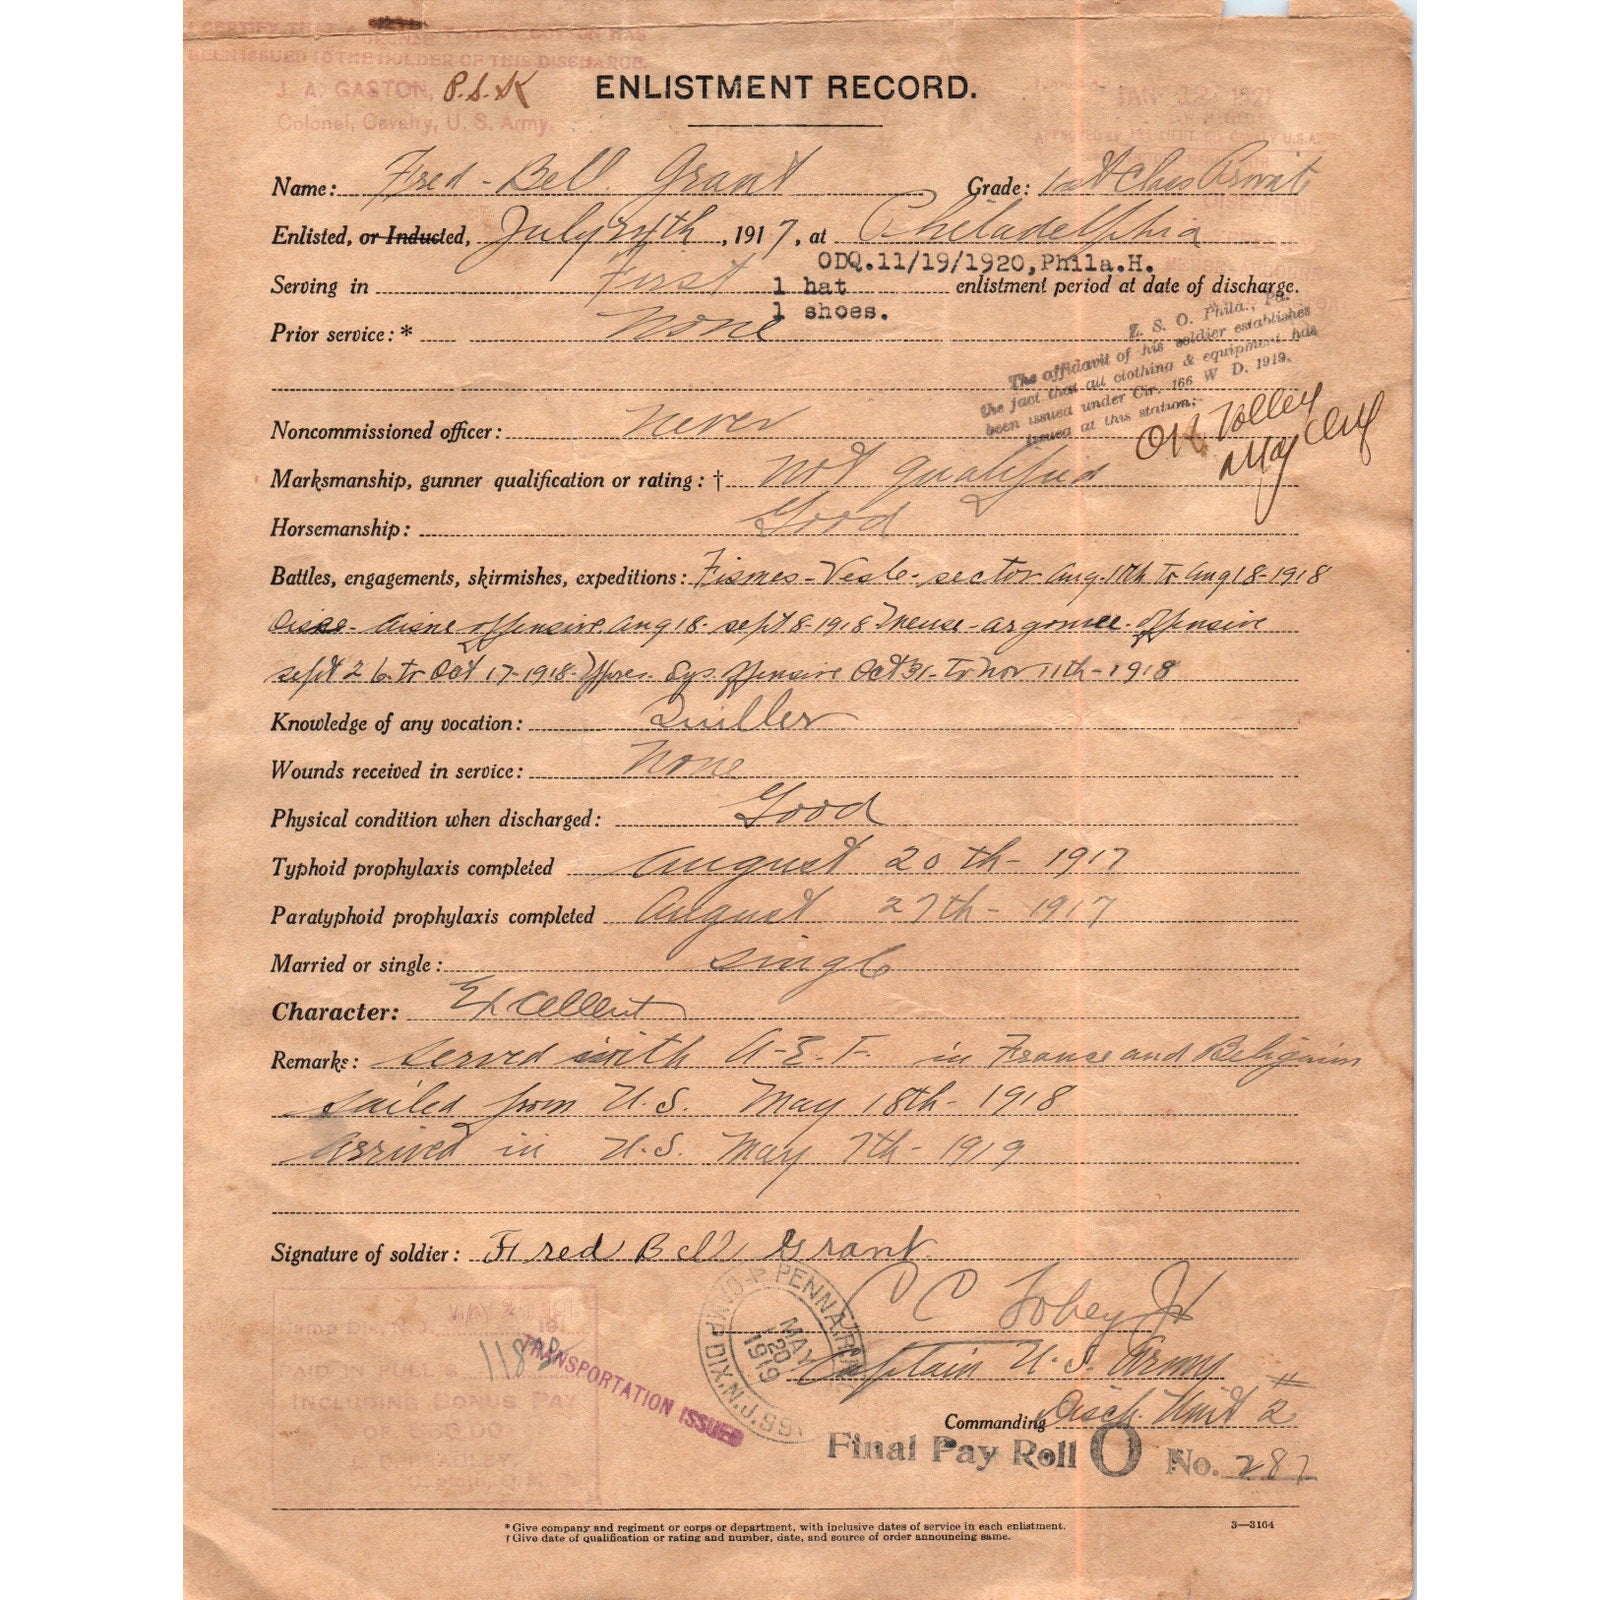 I CERTIFY THAT A BRONZE VICTORY BUTTON HAS
BEEN ISSUED TO THE HOLDER OF THIS DISCHARGE.
J. A. GASTON, P.S.K
Colonel, Cavalry, U. S. Army.
JAN 1921
ENLISTMENT RECORD.
Name: Fred - Bell Grant Grade: 1st Class Private
Enlisted, or Inducted, July 24th, 1917, at Philadelphia
ODQ.11/19/1920,Phila.H.
Serving in First 1 hat enlistment period at date of discharge.
1 shoes.
Prior service:* None
Z. S. O. Phila., Pa.
The affidavit of his soldier establishes
the fact that all clothing & equipment has
been issued under Cir. 166 W D. 1919.
issued at this station:
OK
Noncommissioned officer: Never
Marksmanship, gunner qualification or rating: † Not qualified
Horsemanship: Good
Battles, engagements, skirmishes, expeditions: Fismes - Vesle - sector Aug. 11th to Aug 18 - 1918
Oise - Aisne offensive Aug 18 - Sept 8 - 1918 Meuse - argonne - offensive
Sept 26 to Oct 17 - 1918 - Ypres - Lys offensive Oct 31 - to Nov 11th - 1918
Knowledge of any vocation: Quiller
Wounds received in service: None
Physical condition when discharged: Good
Typhoid prophylaxis completed August 20th - 1917
Paratyphoid prophylaxis completed August 27th - 1917
Married or single: Single
Character: Excellent
Remarks: Served with A-E.F. in France and Beligium
Sailed from U.S. May 18th - 1918
Arrived in U.S. May 7th - 1919
Signature of soldier: Fred Bell Grant
C C Tobey Jr
Captain U. S. Army
Commanding Disch. Unit # 2
CAMP DIX, N.J.
MAY 20 1919
TRANSPORTATION ISSUED
PAID IN FULL $
INCLUDING BONUS PAY
OF $60.00
Final Pay Roll O No. 287
* Give company and regiment or corps or department, with inclusive dates of service in each enlistment.
† Give date of qualification or rating and number, date, and source of order announcing same.
3—3164